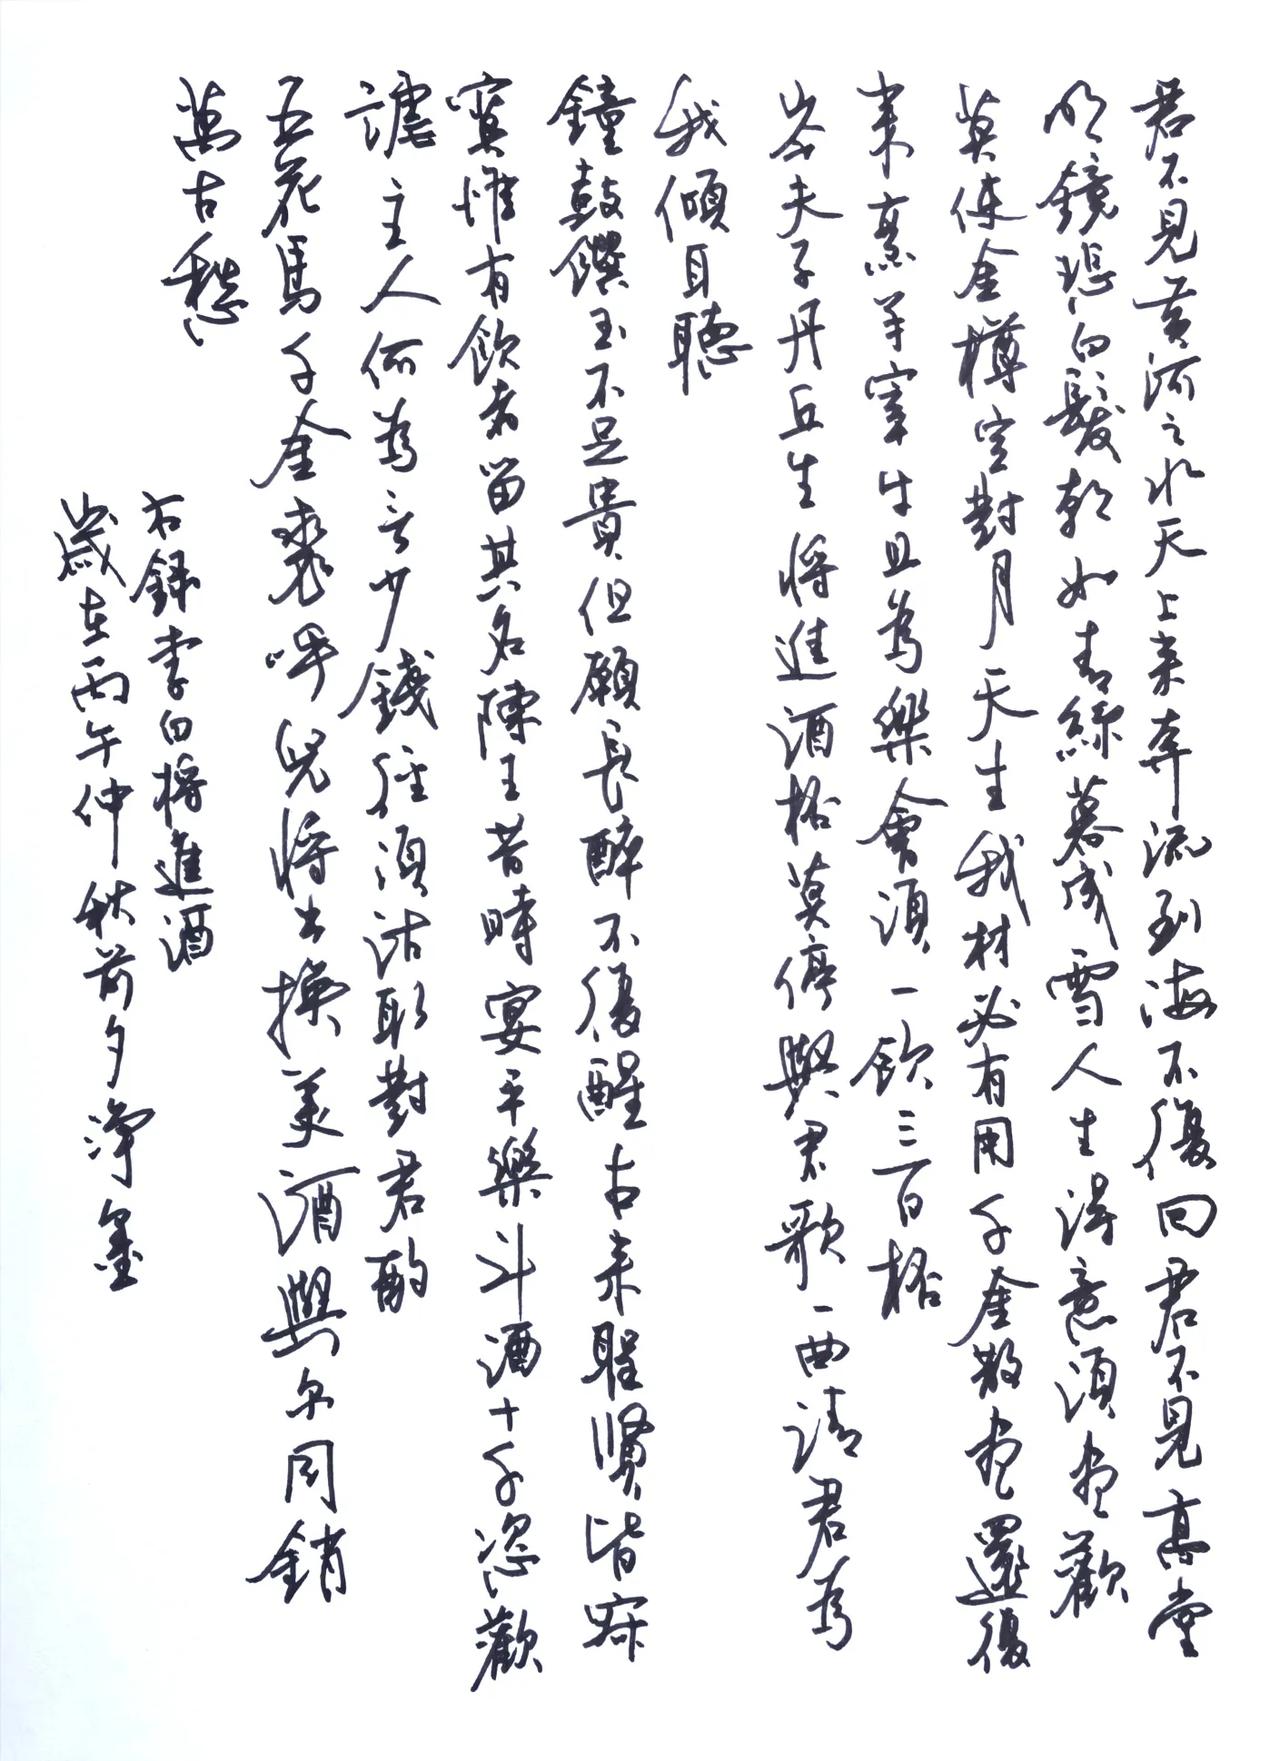 君不見黃河之水天上来奔流到海不復回君不見高堂
明鏡悲白髮朝如青絲暮成雪人生得意須盡歡
莫使金樽空對月天生我材必有用千金散盡還復
来烹羊宰牛且為樂會須一飲三百杯
岑夫子丹丘生將進酒杯莫停與君歌一曲請君為
我傾耳聽
鐘鼓饌玉不足貴但願長醉不復醒古来聖賢皆寂
寞惟有飲者留其名陳王昔時宴平樂斗酒十千恣歡
謔主人何為言少錢徑須沽取對君酌
五花馬千金裘呼兒將出換美酒與尔同銷
萬古愁
右錄李白將進酒
歲在丙午仲秋前夕淨墨